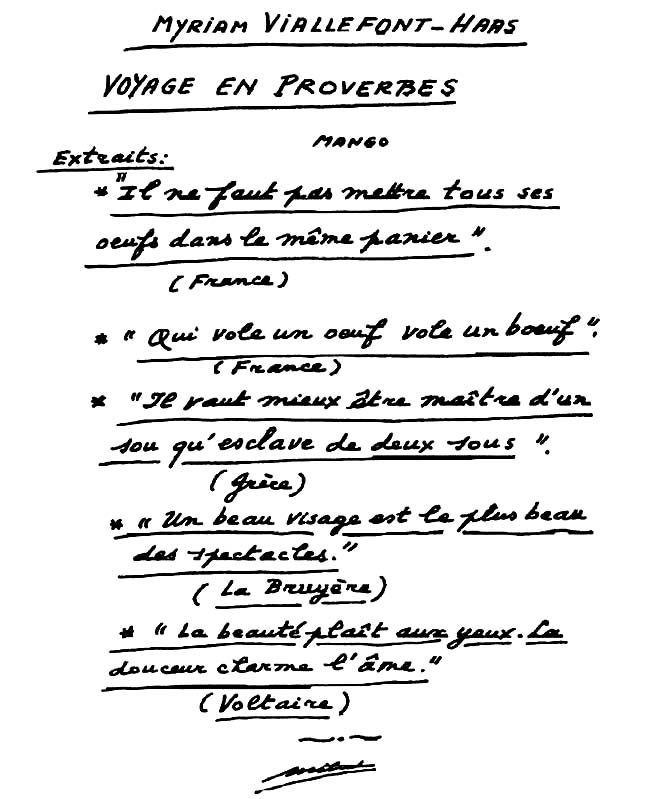 MYRIAM VIALLEFONT-HAAS
VOYAGE EN PROVERBES
MANGO
Extraits:
* "Il ne faut pas mettre tous ses
oeufs dans le même panier".
(France)
* "Qui vole un oeuf vole un boeuf".
(France)
* "Il vaut mieux être maître d'un
sou qu'esclave de deux sous".
(Grèce)
* "Un beau visage est le plus beau
des spectacles."
(La Bruyère)
* "La beauté plaît aux yeux. La
douceur charme l'âme."
(Voltaire)